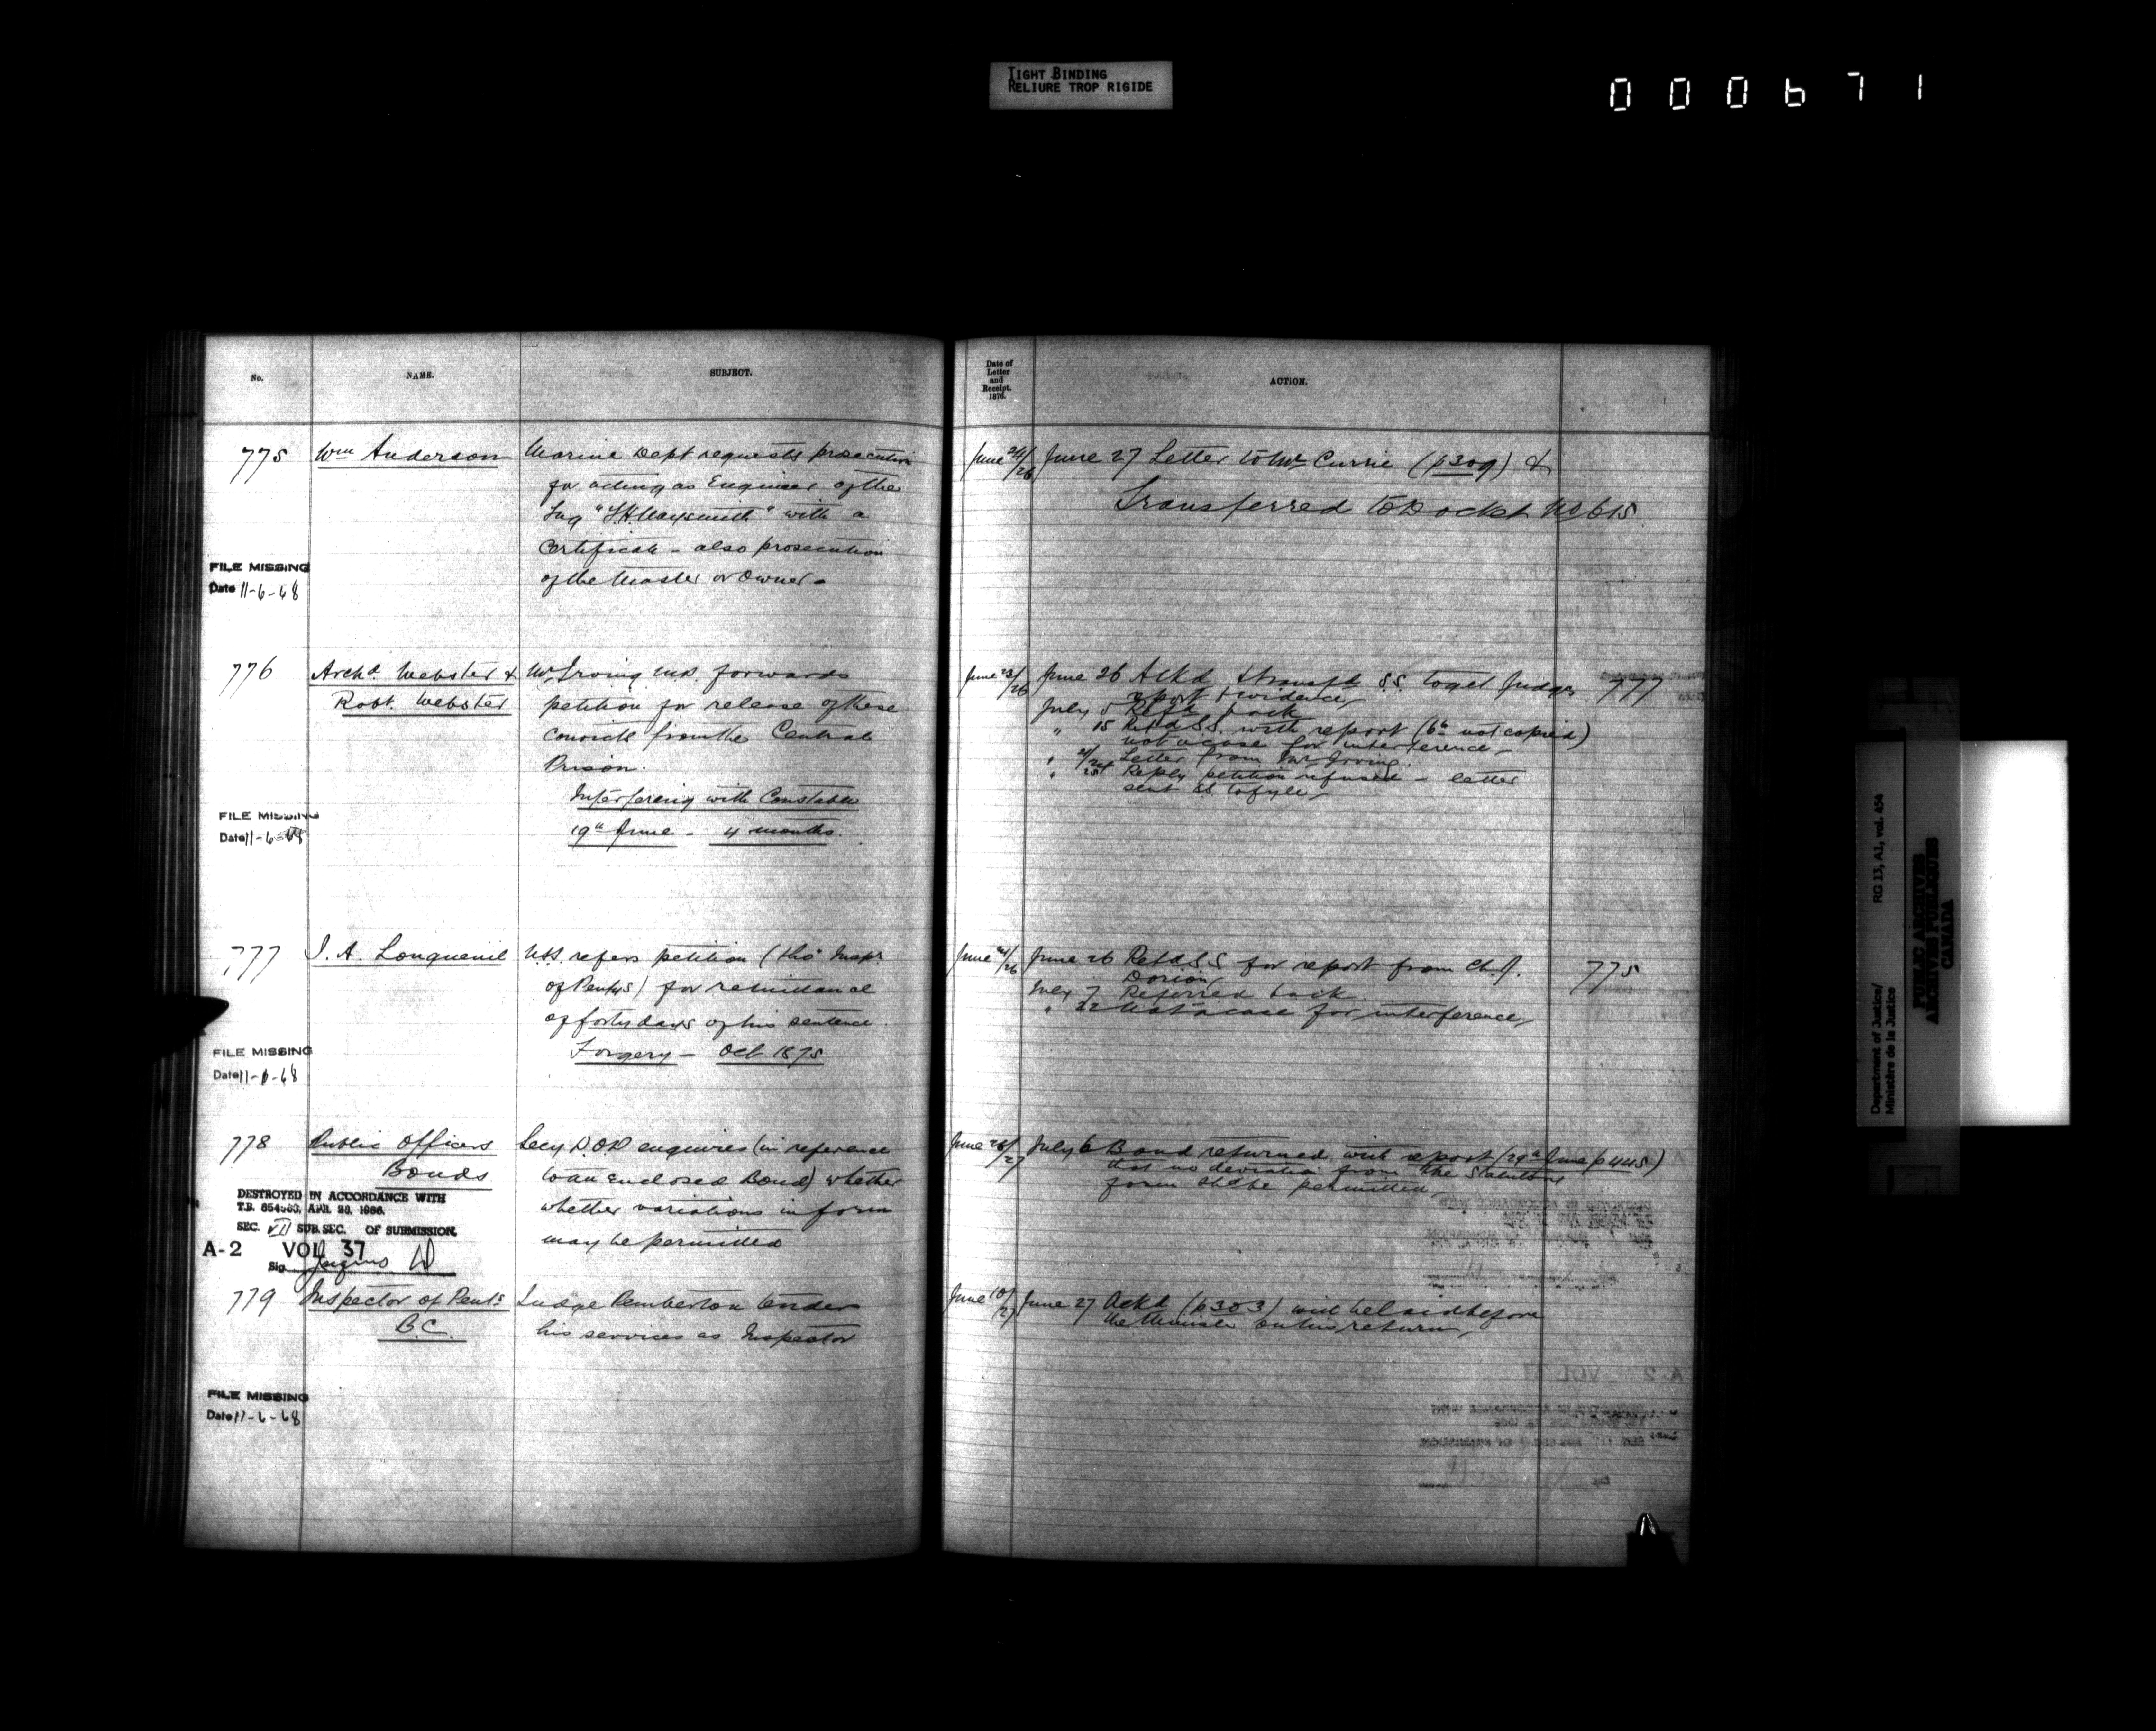 TIGHT BINDING
RELIURE TROP RIGIDE
000671
No.
NAME.
SUBJECT.
Date of
Letter
and
Receipt.
1876.
ACTION.
775
Wm Anderson
Marine Dept requests prosecution
for acting as Engineer of the
Tug "
" with a
Certificate - also prosecution
of the Master or Owner -
FILE MISSING
Date 11-6-68
June 24/26
June 27 Letter to Mr Currie (p309) &
Transferred to Docket No 615
776
Archd. Webster &
Robt. Webster
Mr Irving M.P. forwards
petition for release of these
convicts from the Central
Prison.
Interfering with Constable
19th June - 4 months.
FILE MISSING
Date 11-6-68
June 23/26
June 26 Ackd & transfd S.S. to get Judges
report & evidence,
July 5 Refd back
" 15 Refd S.S. with report (6th not copied)
not a case for interference -
" Letter from Mr Irving.
" Reply petition refused - letter
sent SS to fyle,
777
777
Longueuil
U.S.S. refers petition (thro' Inspr.
of Pentys) for remittance
of forty days of his sentence.
Forgery - Oct 1875
FILE MISSING
Date 11-6-68
June 26 Refd S.S for report from Ch. J.
Dorion,
July 7 Referred back.
" 22 Not a case for interference,
775
778
Public Officers
Bonds
Secy enquires (in reference
to an enclosed Bond) whether
whether variations in form
may be permitted
DESTROYED IN ACCORDANCE WITH
T.B. 654563, APR. 28, 1966.
SEC. VII SUB. SEC. OF SUBMISSION.
A-2 VOL 37
Sig.
June 26/27
July 6 Bond returned with report (29th June p445)
that no deviation from the Statutory
form shd be permitted,
779
Inspector of Pents
B.C.
Judge Pemberton tenders
his services as Inspector
FILE MISSING
Date 11-6-68
June 10/27
June 27 Ackd (p303) will be laid before
the Minister on his return,
Department of Justice/
Ministère de la Justice
RG 13, A1, vol. 454
PUBLIC ARCHIVES
ARCHIVES PUBLIQUES
CANADA